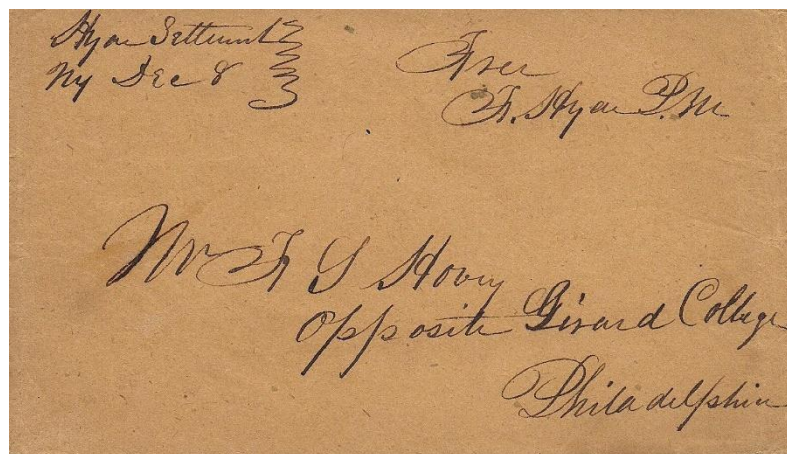 Ryan Settlemt
Ny Dec 8
Free
F. Ryan P.M
Mr F S Hovey
Opposite Girard College
Philadelphia